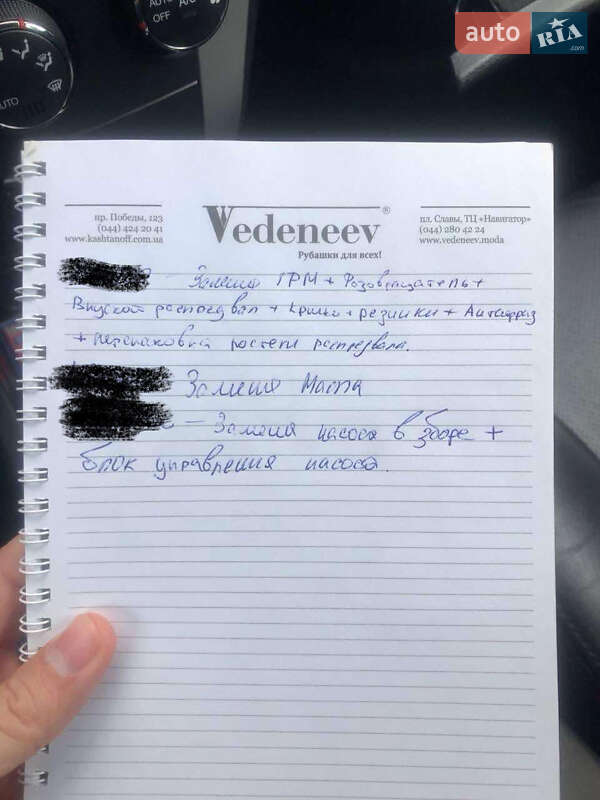 auto RIA .com
AUTO
OFF
A/C
AUTO
пр. Победы, 123
(044) 424 20 41
www.kashtanoff.com.ua
Vedeneev®
Рубашки для всех!
пл. Славы, ТЦ «Навигатор»
(044) 280 42 24
www.vedeneev.moda
Замена ГРМ + Фазовращатель +
Впуской распредвал + крышка + резинки + Антифриз
+ распредвала.
Замена Масла
– Замена насоса в зборе +
блок управления насоса.